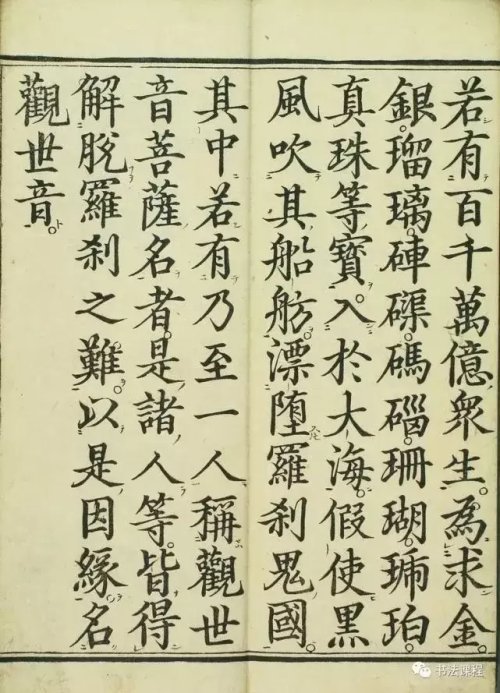 若有百千萬億衆生。為求金。
銀。瑠璃。硨磲。碼碯。珊瑚。琥珀。
真珠等寶。入於大海。假使黑
風吹其船舫。漂堕羅刹鬼國
其中若有乃至一人稱觀世
音菩薩名者。是諸人等。皆得
解脫羅刹之難。以是因緣。名
觀世音。
书法课程